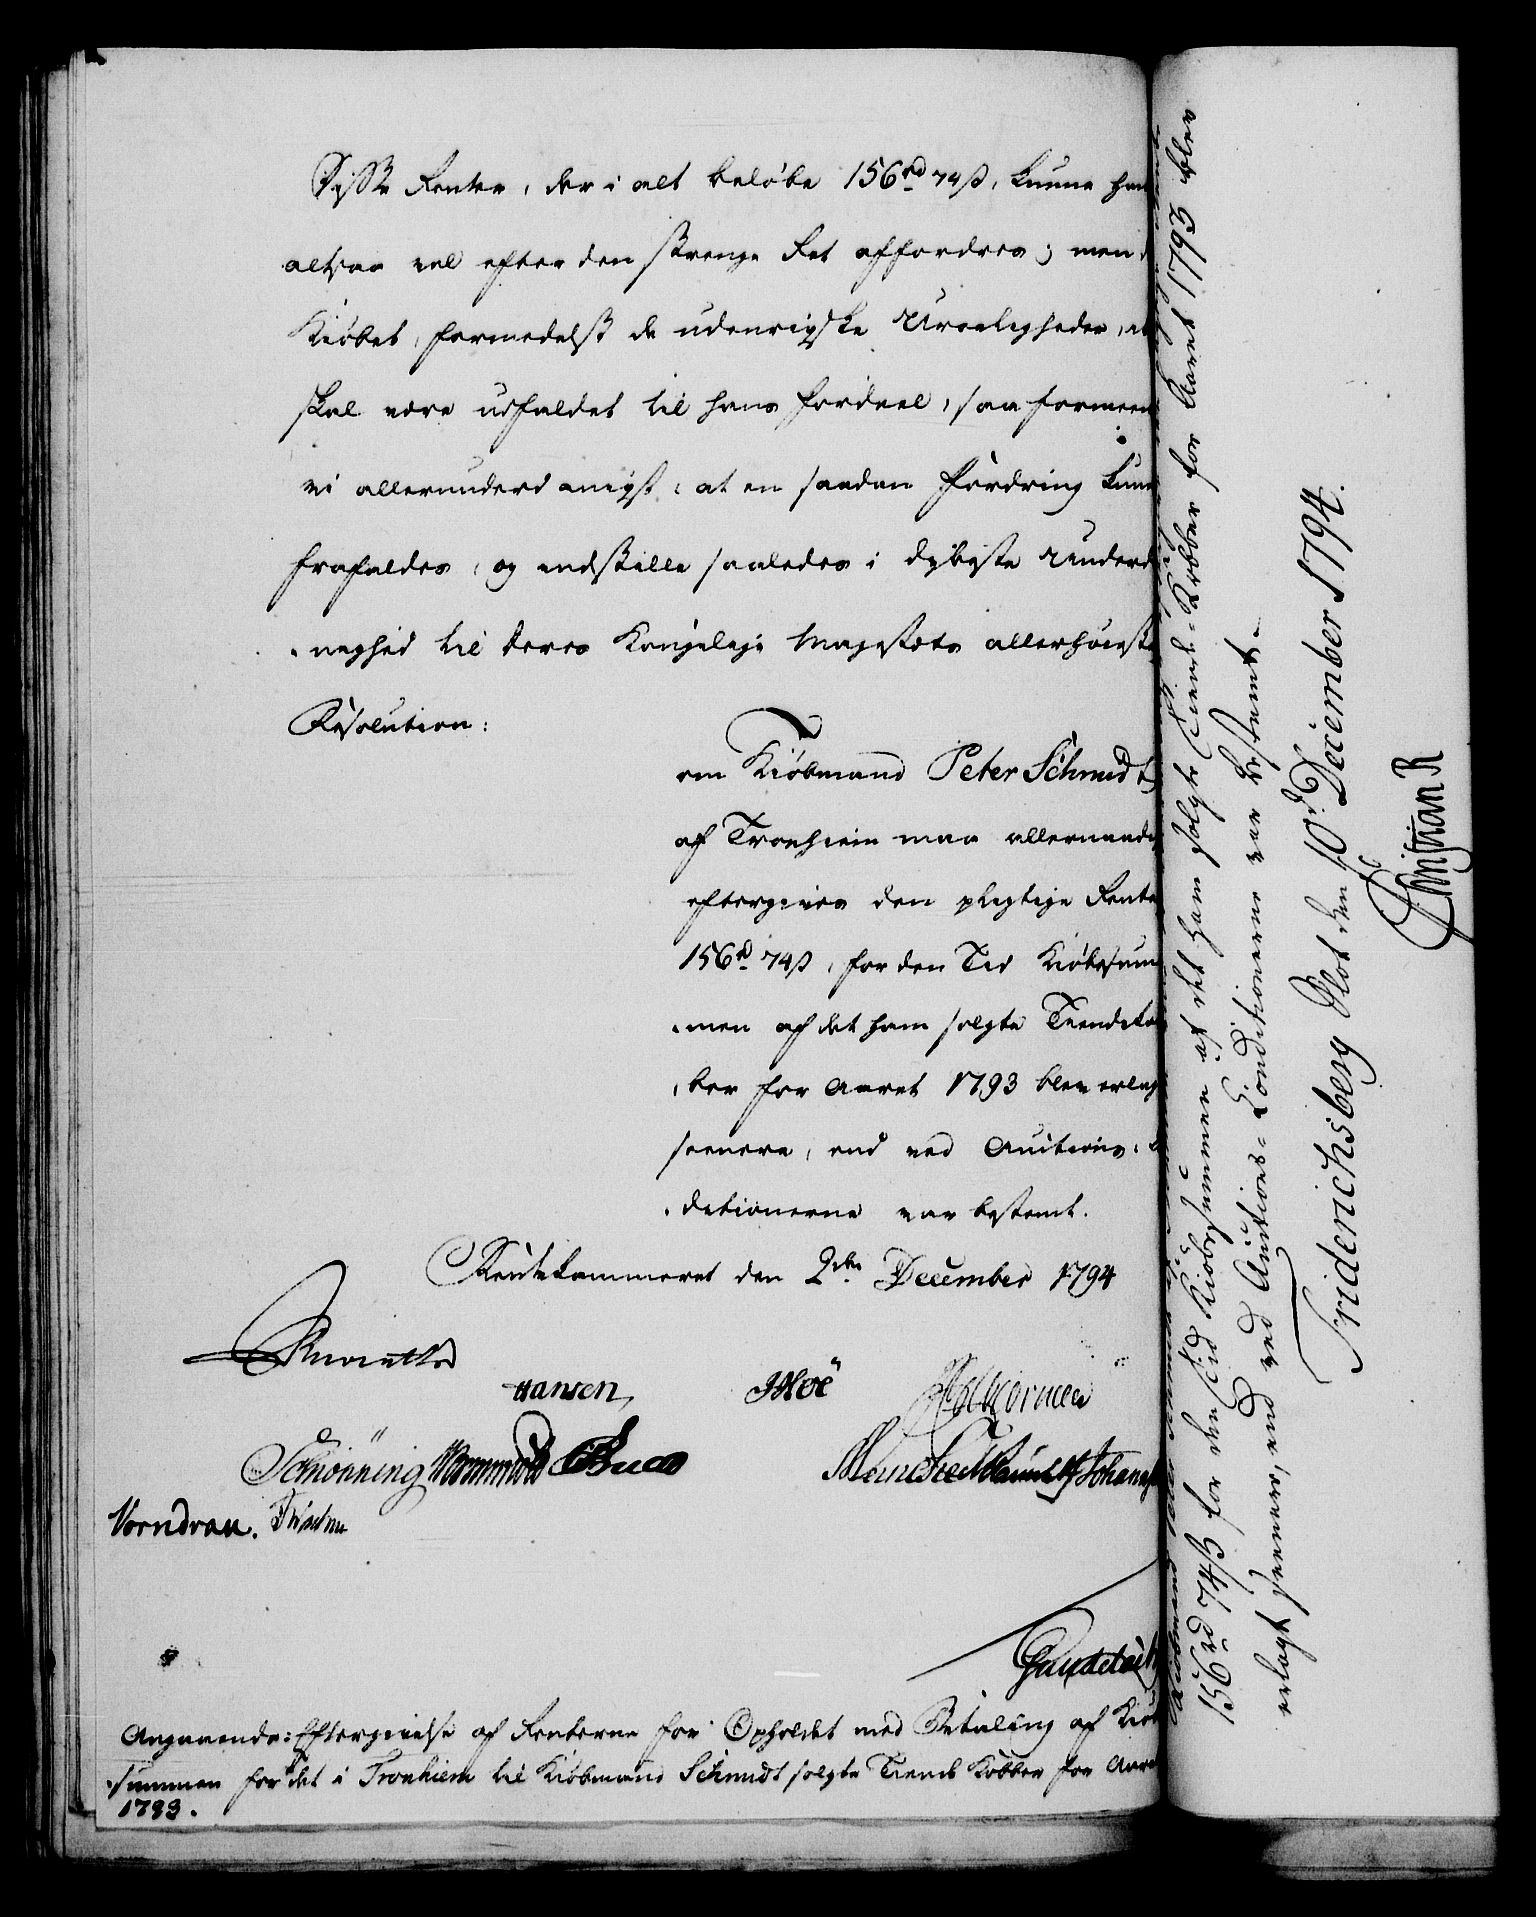 Disse Renter, der i alt beløbe 156rd 74ß, kunne ham
altsaa vel efter den strenge Ret affordres; men
Kiøbet, formedelst de udenrigske Uroeligheder, ei
skal være udfaldet til hans Fordeel, saa formeene
vi allerunderdanigst: at en saadan Fordring kunde
frafaldes, og indstille saaledes i dybeste Underda
nighed til Deres Kongelige Majestæts allerhøieste
Resolution:
om Kiøbmand Peter Schmidt
af Tronhiem maa allernaadigst
eftergives den pligtige Rente
156rd 74ß, for den Tid Kiøbesum
men af det ham solgte Tiendekob
ber for Aaret 1793 blev erlagt
seenere, end ved Auctions-
ditionerne var bestemt.
Rentekammeret den 2den December 1794
Hansen, JHoë
Schiönning
Vorndran.
Angaaende: Eftergivelse af Renterne for Opholdet med Betaling af Kiøbe
summen for det i Tronhiem til Kiøbmand Schmidt solgte Tiende Kobber for Aaret
1793.
156rd 74ß for den Tid Kiøbesummen af det ham solgte Tiende-Kobber for Aaret 1793 blev
erlagt seenere, end ved Auctions-Conditionerne var bestemt.
Friderichsberg Slot den 10d December 1794.
Christian R